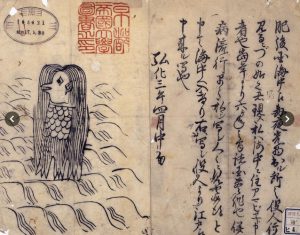 肥後国海中え毎夜光物出ル所之役人行
見るニづの如く者現ス私ハ海中ニ住アマビヱト申
者也当年より六ヶ年之間諸国豊作也併
病流行早々私ヲ写シ人々ニ見セ候得と
申て海中へ入けり右写シ役人より江戸え
申来ル写也
弘化三年四月中旬